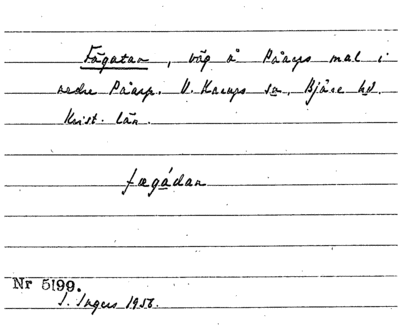 Fägatan, väg å Påarps mal i
nedre Påarp. V. Karups sn. Bjäre hd.
Krist. län.
fægádan
Nr 5199.
I. Ingers 1956.